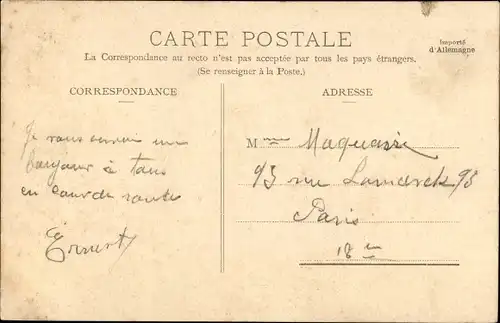 CARTE POSTALE
Importé
d'Allemagne
La Correspondance au recto n'est pas acceptée par tous les pays étrangers.
(Se renseigner à la Poste.)
CORRESPONDANCE
ADRESSE
Je vous envoi un
bonjour à tous
en cour de route
Ernest
Mme
93 rue Lamarck 93
Paris
18em